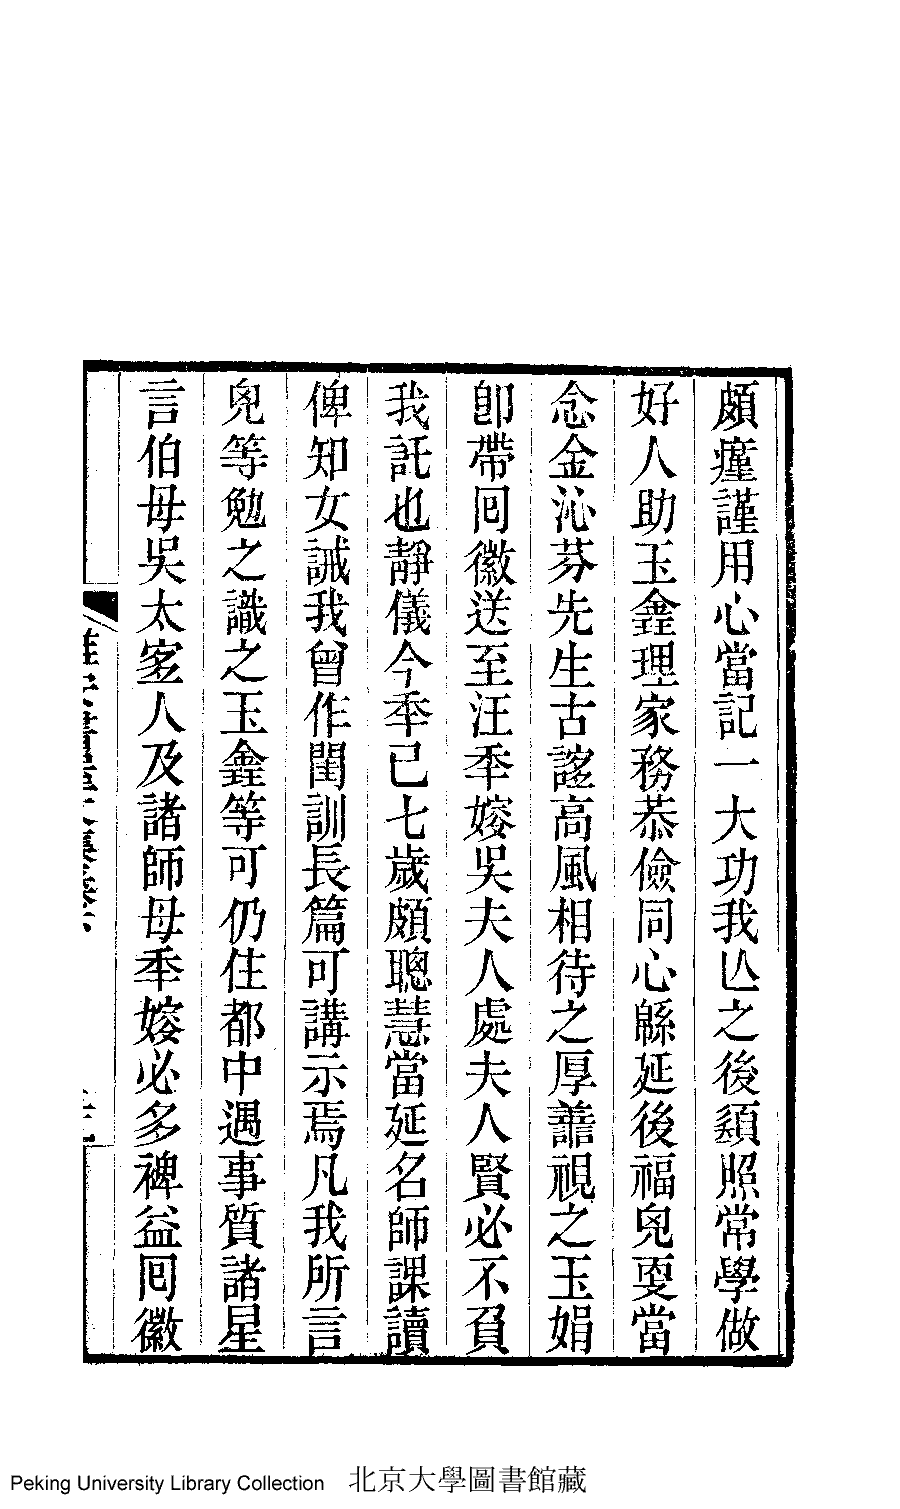 頗瘽謹用心當記一大功我亾之後須照常學做
好人助玉鑫理家務恭儉同心緜延後福兒耍當
念金沁芬先生古誼高風相待之厚譱視之玉娟
卽帶囘徽送至汪秊嫂吳夫人處夫人賢必不負
我託也靜儀今秊已七歲頗聰慧當延名師課讀
俾知女誡我曾作閨訓長篇可講示焉凡我所言
兒等勉之識之玉鑫等可仍住都中遇事質諸星
言伯母吳太夫人及諸師母秊嫂必多裨益囘徽
Peking University Library Collection 北京大學圖書館藏